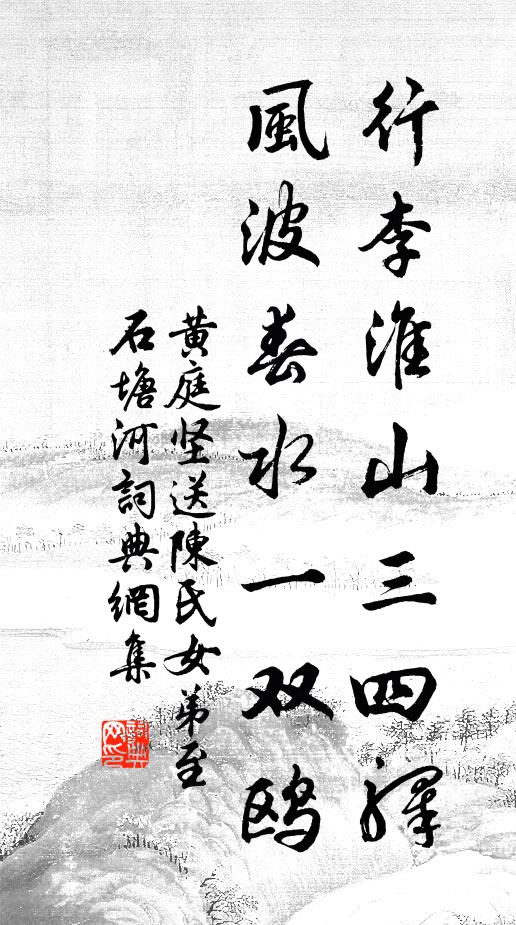 行李淮山三四驛
風波春水一双鸥
黄庭坚送陳氏女弟至
石塘河詞典網集